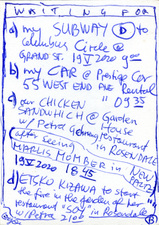 WAITING FOR
a) my SUBWAY D to
Columbus Circle @
GRAND ST. 19 V 2020 9:00
b) my CAR @ Prestige Car
55 WEST END AVE Rental
" 09 35
c) our CHICKEN
SANDWHICH @ Garden
w/ Petra House
restaurant in ROSENDALE
(after seeing
MARUS MOMBER in NEW
PALTZ)
19 V 2020 18 45
d) ETSKO KIZAWA to start
the fire in the garden of her
restaurant "SOY" in Rosendale
w/ PETRA 21 00